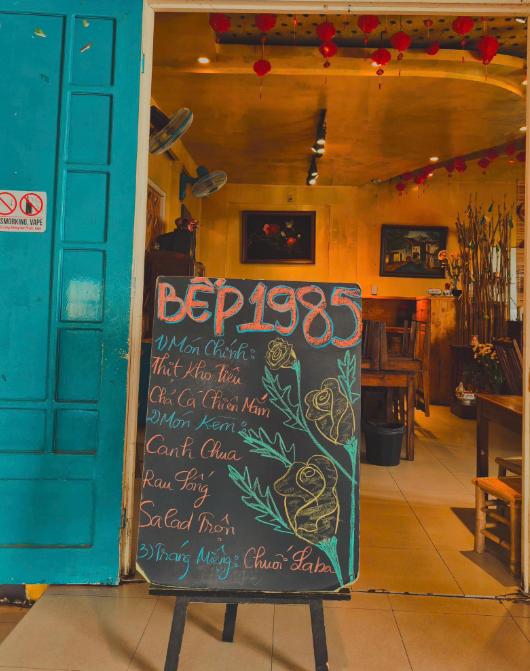 BẾP 1985
1) Món Chính:
Thịt Kho Tiêu
Chả Cá Chiên Mắm
2) Món Kèm:
Canh Chua
Rau Sống
Salad Trộn
3) Tráng Miệng: Chuối Laba
SMORKING, VAPE